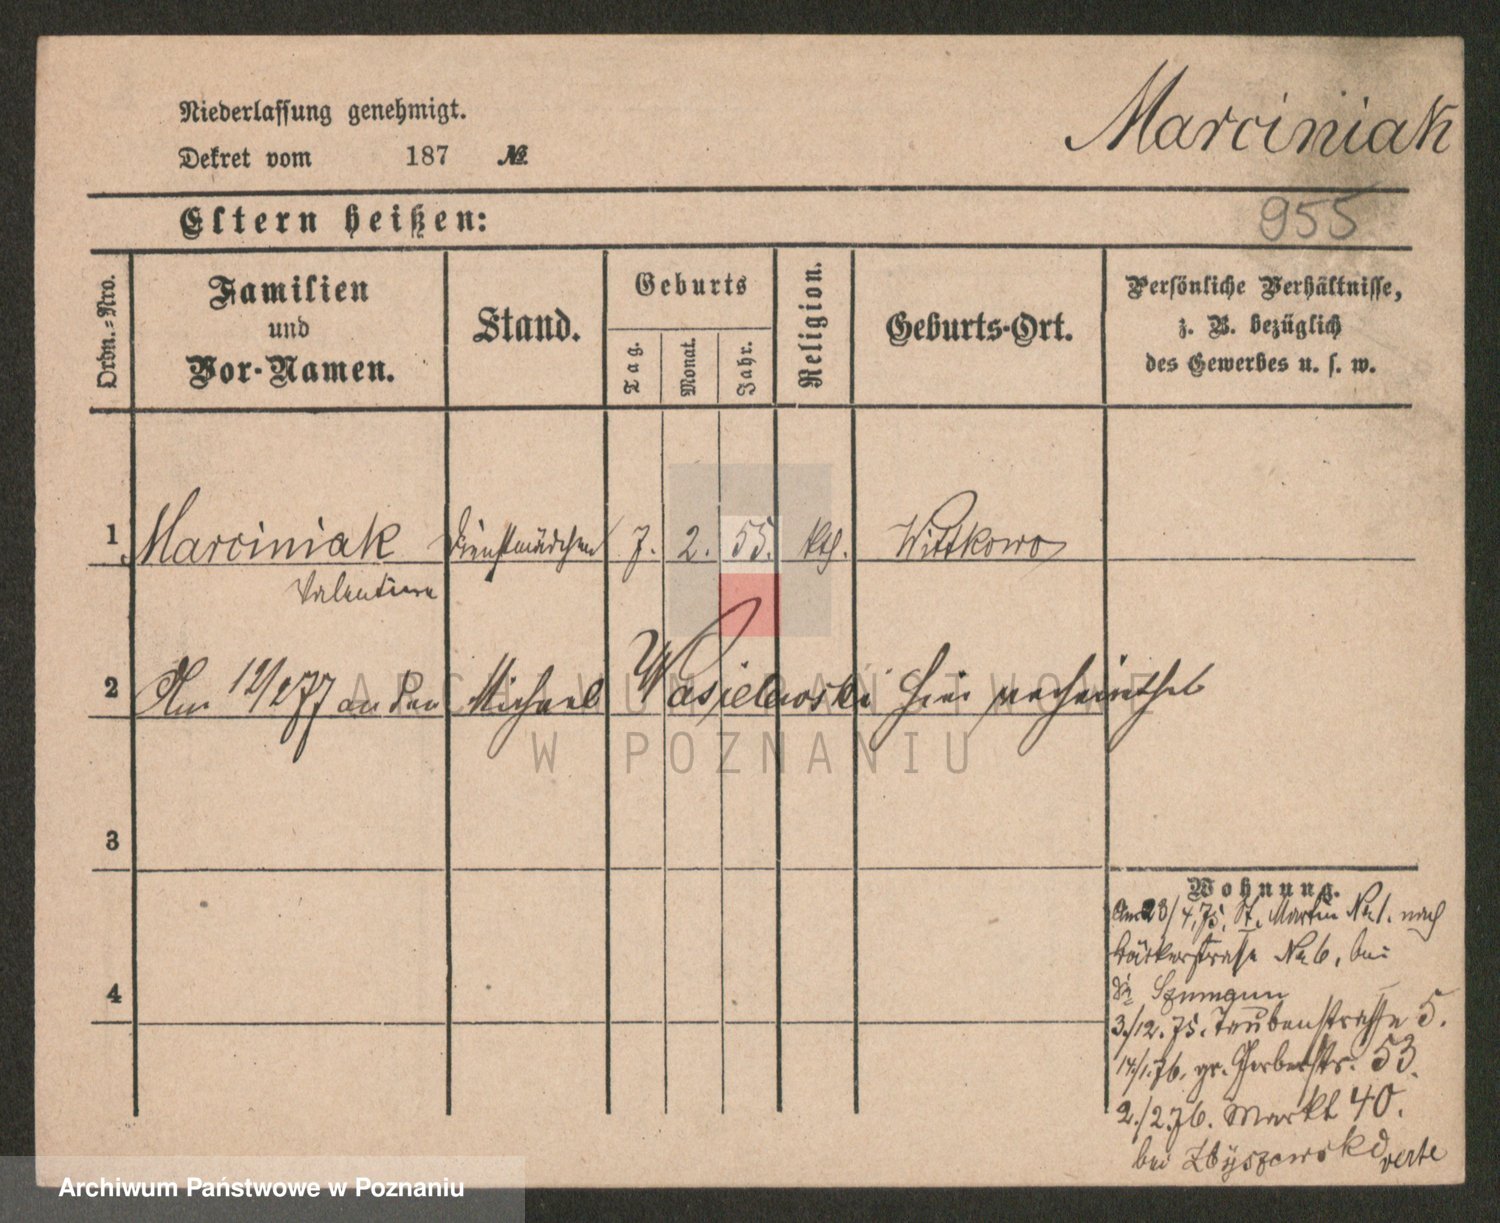 Niederlassung genehmigt.
Dekret vom 187 №
Marciniak
Eltern heißen:
955
Ordn.=Nro.
Familien
und
Vor-Namen.
Stand.
Geburts
Tag.
Monat.
Jahr.
Religion.
Geburts-Ort.
Persönliche Verhältnisse,
z. B. bezüglich
des Gewerbes u. s. w.
1 Marciniak Dienstmädchen 7. 2. 55. kth. Wittkowo
Valentine
2 Am 12/2 77 an den Michael Wasielewski hier verheirathet
ARCHIWUM PAŃSTWOWE
W POZNANIU
3
4
Wohnung.
Am 23/4.75. St. Martin No 1. nach
Bäckerstrasse No 6, bei
3./12.75. Taubenstrasse 5.
14/1.76. gr. Gerberstr. 53.
2./2.76. Markt 40.
bei Zbyszewski
verte
Archiwum Państwowe w Poznaniu